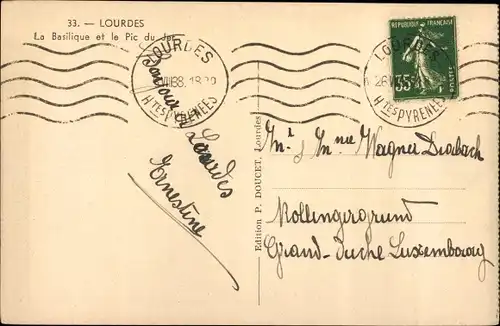 33. — LOURDES
La Basilique et le Pic du Jer
LOURDES
18
Htes PYRENEES
LOURDES
26
Htes PYRENEES
REPUBLIQUE FRANÇAISE
35c
POSTES
Lourdes
Ernestine
Edition P. DOUCET, Lourdes
Mr & Mme Wagner Diesbach
Rollingergrund
Grand-Duché Luxembourg